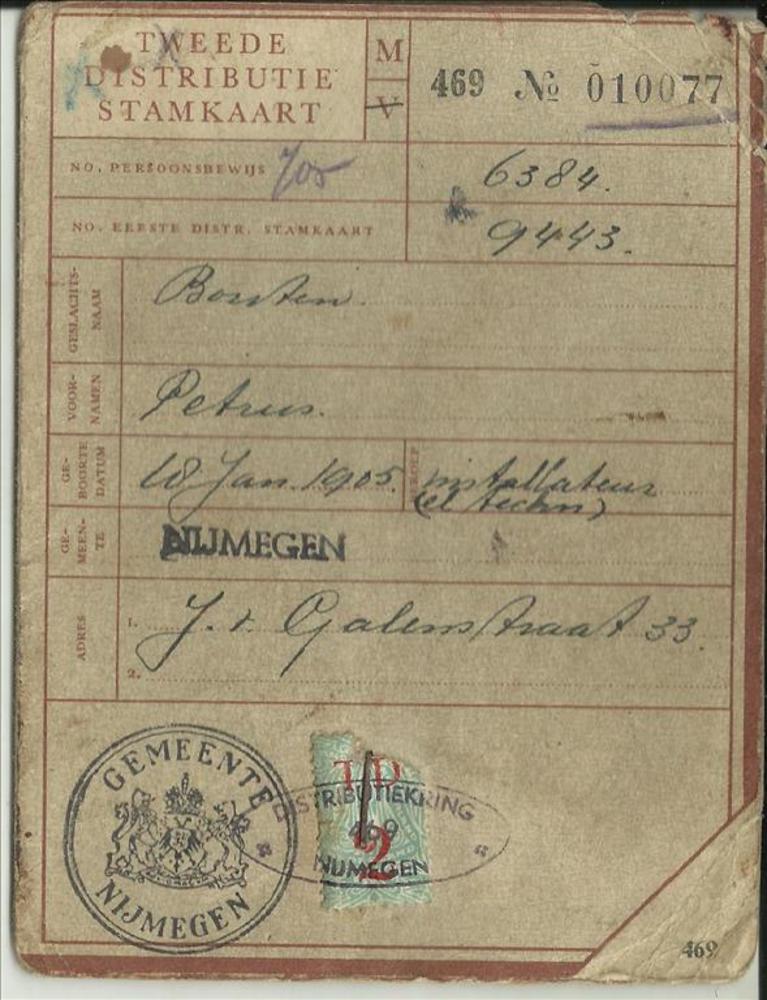 TWEEDE
DISTRIBUTIE
STAMKAART
M
V
469 № 010077
NO. PERSOONSBEWIJS
6384.
NO. EERSTE DISTR. STAMKAART
9443.
GESLACHTS-
NAAM
Bouten.
VOOR-
NAMEN
Petrus.
GE-
BOORTE
DATUM
18 Jan. 1905.
BEROEP
installateur
(el techn)
GE-
MEEN-
TE
NIJMEGEN
ADRES
1. J. v. Galenstraat 33.
2.
GEMEENTE
NIJMEGEN
TD
2
DISTRIBUTIEKRING
469
NIJMEGEN
469